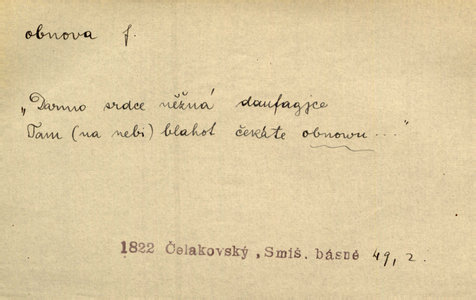 obnova f.
„Darmo srdce něžná daufagjce
Tam (na nebi) blahot čekáte obnowu..."
1822 Čelakovský, Smiš. básně 49, 2.